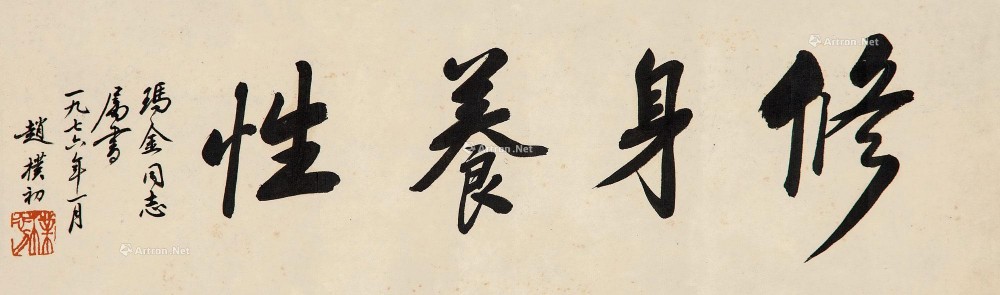 修身養性
瑪金同志
屬書
一九七六年一月
趙樸初
Artron.Net
Artron.Net
Artron.Net
Artron.Net